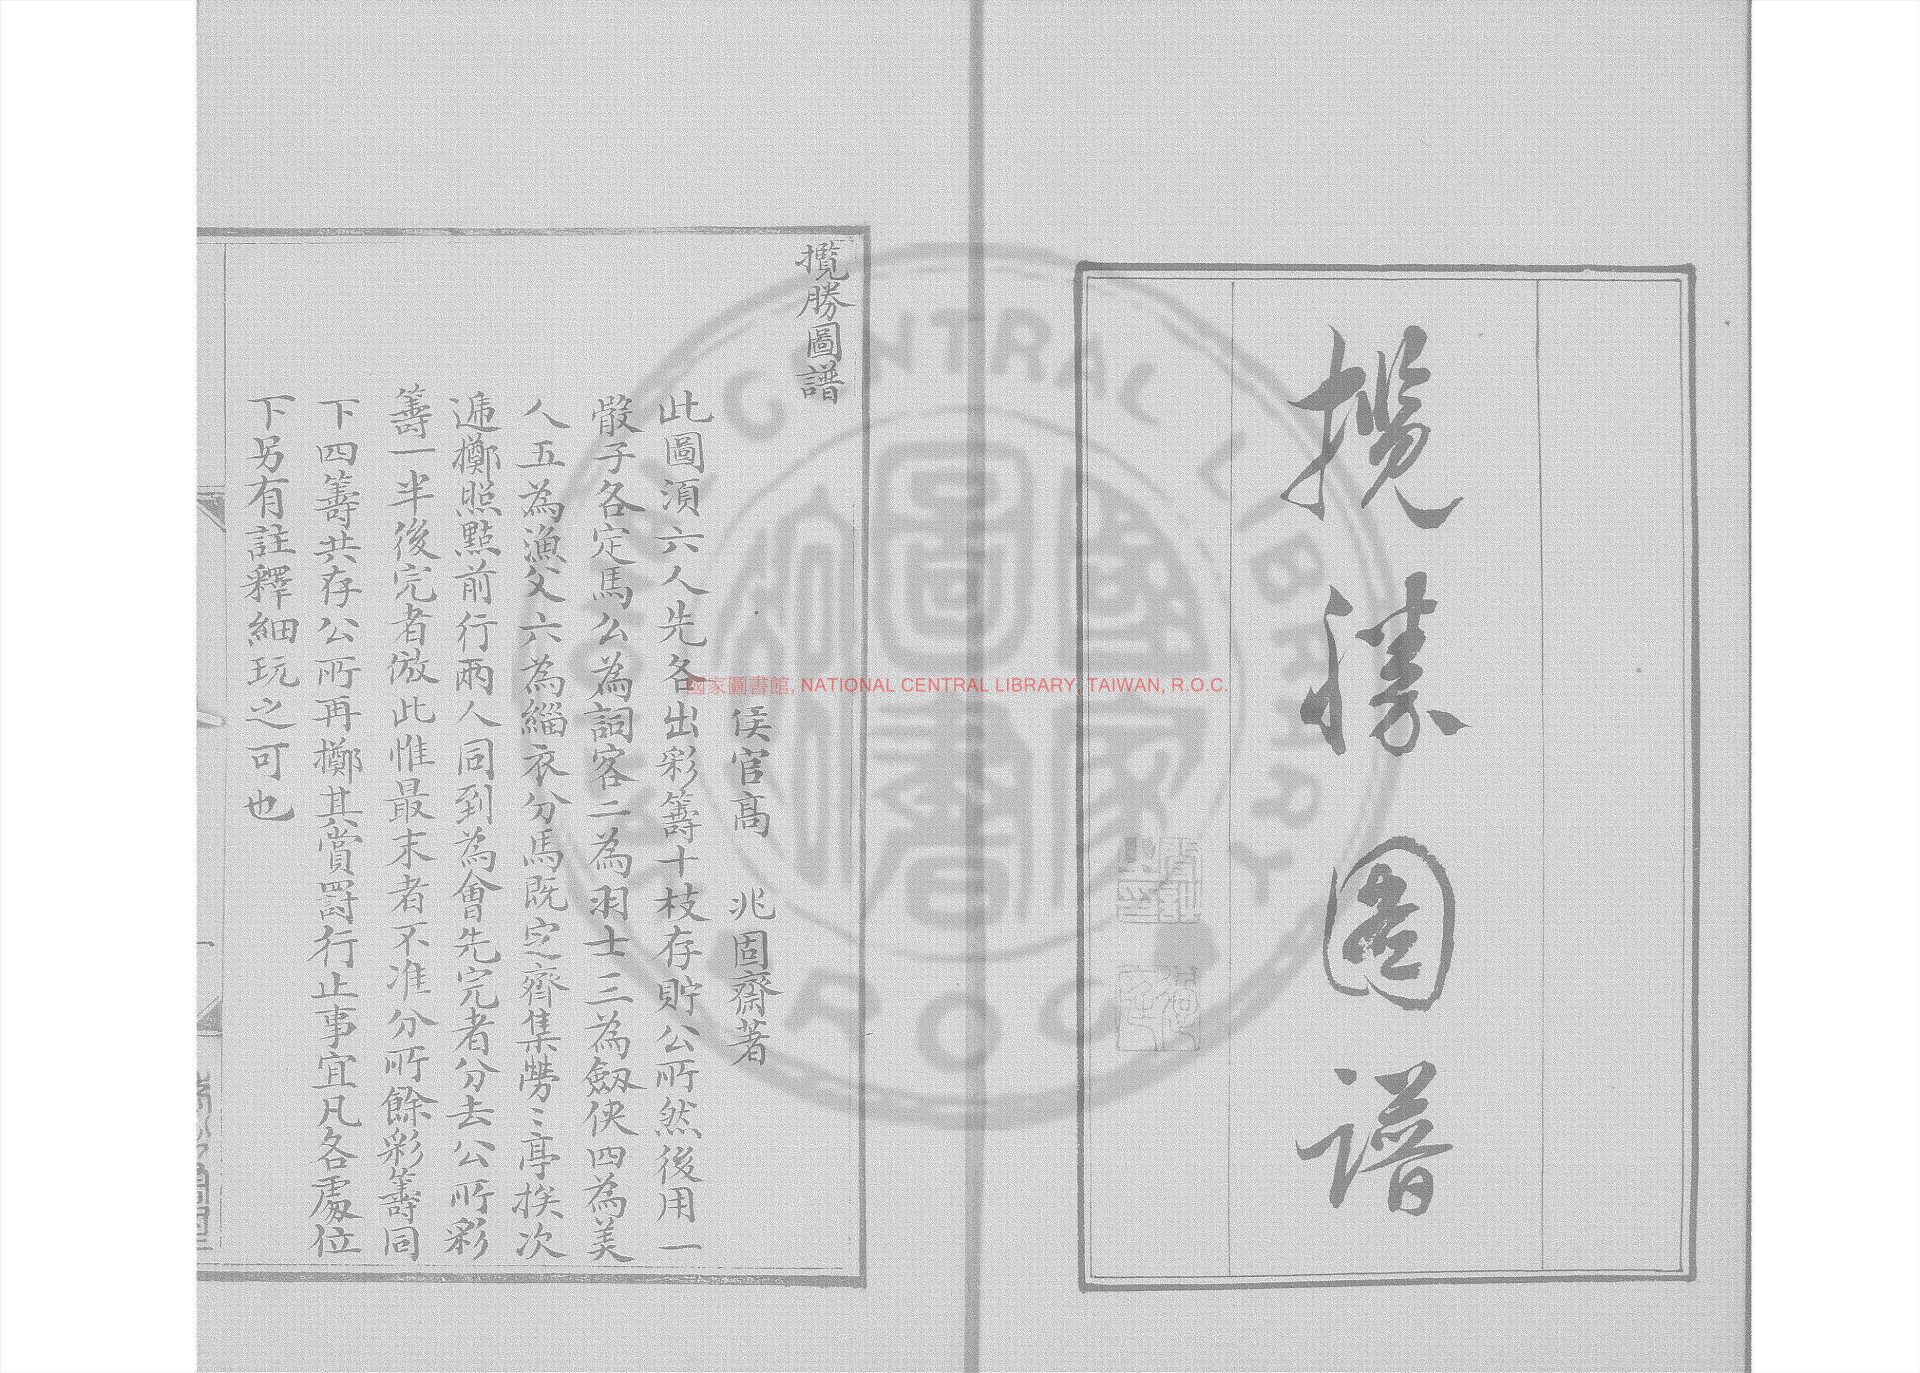 攬勝圖譜
攬勝圖譜
侯官高 兆固齋著
此圖湏六人先各出彩籌十枝存貯公所然後用一
骰子各定馬公為詞客二為羽士三為劔俠四為美
人五為漁父六為緇衣分馬既定齊集勞〻亭挨次
逓擲照點前行兩人同到為會先完者分去公所彩
籌一半後完者倣此惟最末者不准分所餘彩籌同
下四籌共存公所再擲其賞罸行止事宜凡各處位
下另有註釋細玩之可也
國家圖書館, NATIONAL CENTRAL LIBRARY, TAIWAN, R.O.C.
國家圖書館
NATIONAL CENTRAL LIBRARY
R O C